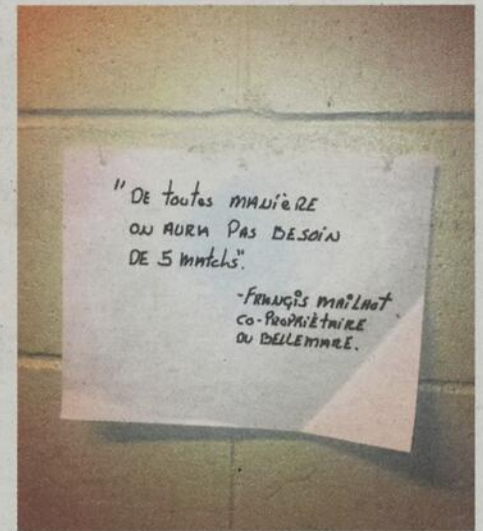 "DE toutes MANIÈRE
ON AURA PAS BESOIN
DE 5 MATCHS".
-FRANÇIS MAILHOT
CO-PROPRIÉTAIRE
DU BELLEMARE.